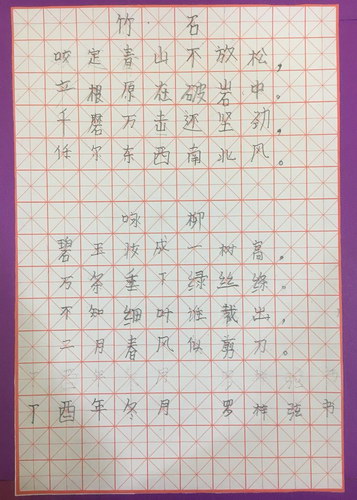 竹石
咬定青山不放松，
立根原在破岩中。
千磨万击还坚劲，
任尔东西南北风。
咏柳
碧玉妆成一树高，
万条垂下绿丝绦。
不知细叶谁裁出，
二月春风似剪刀。
丁酉年冬月 罗梓弦书